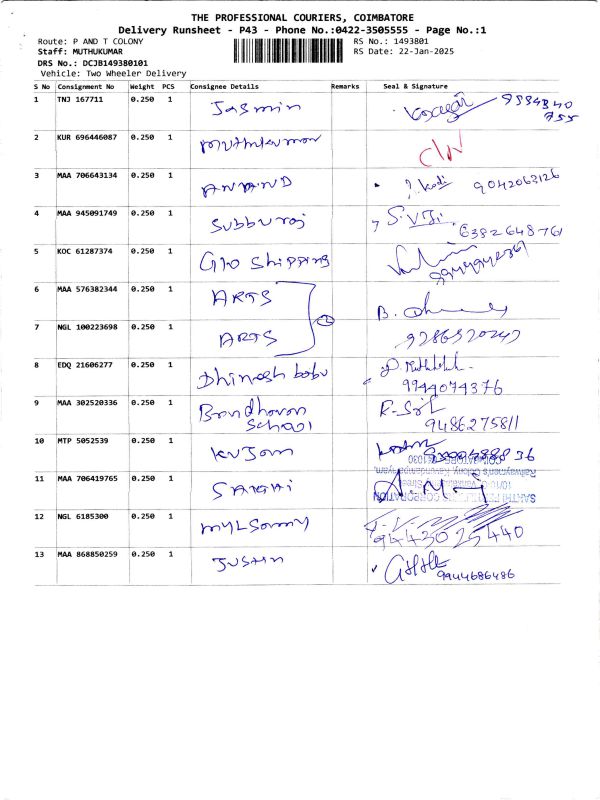 THE PROFESSIONAL COURIERS, COIMBATORE
Delivery Runsheet - P43 - Phone No.:0422-3505555 - Page No.:1
Route: P AND T COLONY RS No.: 1493801
Staff: MUTHUKUMAR RS Date: 22-Jan-2025
DRS No.: DCJB149380101
Vehicle: Two Wheeler Delivery
S No Consignment No Weight PCS Consignee Details Remarks Seal & Signature
1 TNJ 167711 0.250 1 Jasmin
2 KUR 696446087 0.250 1 muthukumar C/N
3 MAA 706643134 0.250 1 ANAND 9042063126
4 MAA 945091749 0.250 1 Subburaj 6382648761
5 KOC 61287374 0.250 1 Glo Shipping
6 MAA 576382344 0.250 1 ARTS
7 NGL 100223698 0.250 1 ARTS 9286520247
8 EDQ 21606277 0.250 1 Dhinesh babu 9944074376
9 MAA 302520336 0.250 1 Bondhavan School 9486275811
10 MTP 5052539 0.250 1
11 MAA 706419765 0.250 1
12 NGL 6185300 0.250 1 mylsamy 9443025440
13 MAA 868850259 0.250 1 Justin 9944686486